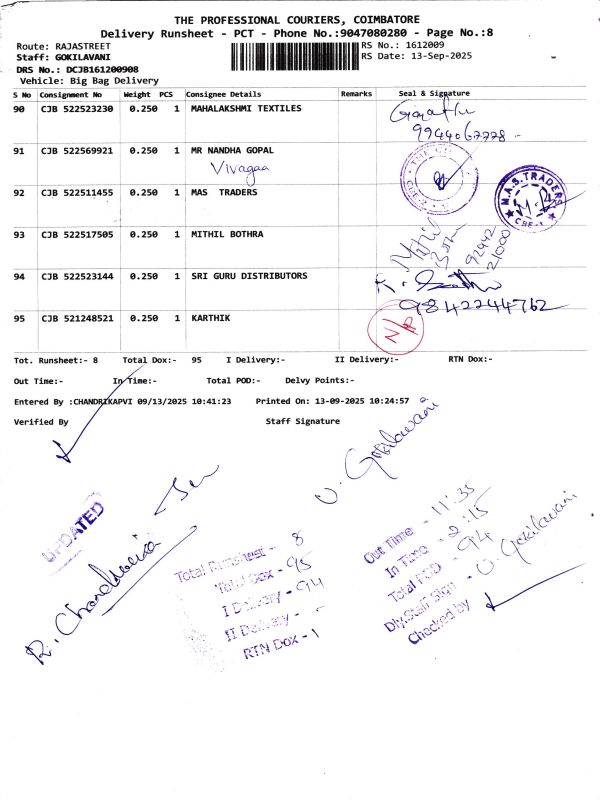 THE PROFESSIONAL COURIERS, COIMBATORE
Delivery Runsheet - PCT - Phone No.:9047080280 - Page No.:8
Route: RAJASTREET
RS No.: 1612009
Staff: GOKILAVANI
RS Date: 13-Sep-2025
DRS No.: DCJB161200908
Vehicle: Big Bag Delivery
S No Consignment No Weight PCS Consignee Details Remarks Seal & Signature
90 CJB 522523230 0.250 1 MAHALAKSHMI TEXTILES
9944067778
91 CJB 522569921 0.250 1 MR NANDHA GOPAL
Vivagaa
92 CJB 522511455 0.250 1 MAS TRADERS
M.A.S. TRADERS
CBE-1
93 CJB 522517505 0.250 1 MITHIL BOTHRA
Mithil
Bothra
92442
21000
94 CJB 522523144 0.250 1 SRI GURU DISTRIBUTORS
9842244762
95 CJB 521248521 0.250 1 KARTHIK
N/P
Tot. Runsheet:- 8 Total Dox:- 95 I Delivery:- II Delivery:- RTN Dox:-
Out Time:- In Time:- Total POD:- Delvy Points:-
Entered By :CHANDRIKAPVI 09/13/2025 10:41:23 Printed On: 13-09-2025 10:24:57
Verified By Staff Signature
U. Gokilavani
UPDATED
R. Chandrika
Total Runsheet - 8
Total Dox - 95
I Delivery - 94
II Delivery -
RTN Dox - 1
Out Time - 11:35
In Time - 2:15
Total POD - 94
Dly.Staff Sign - U. Gokilavani
Checked by